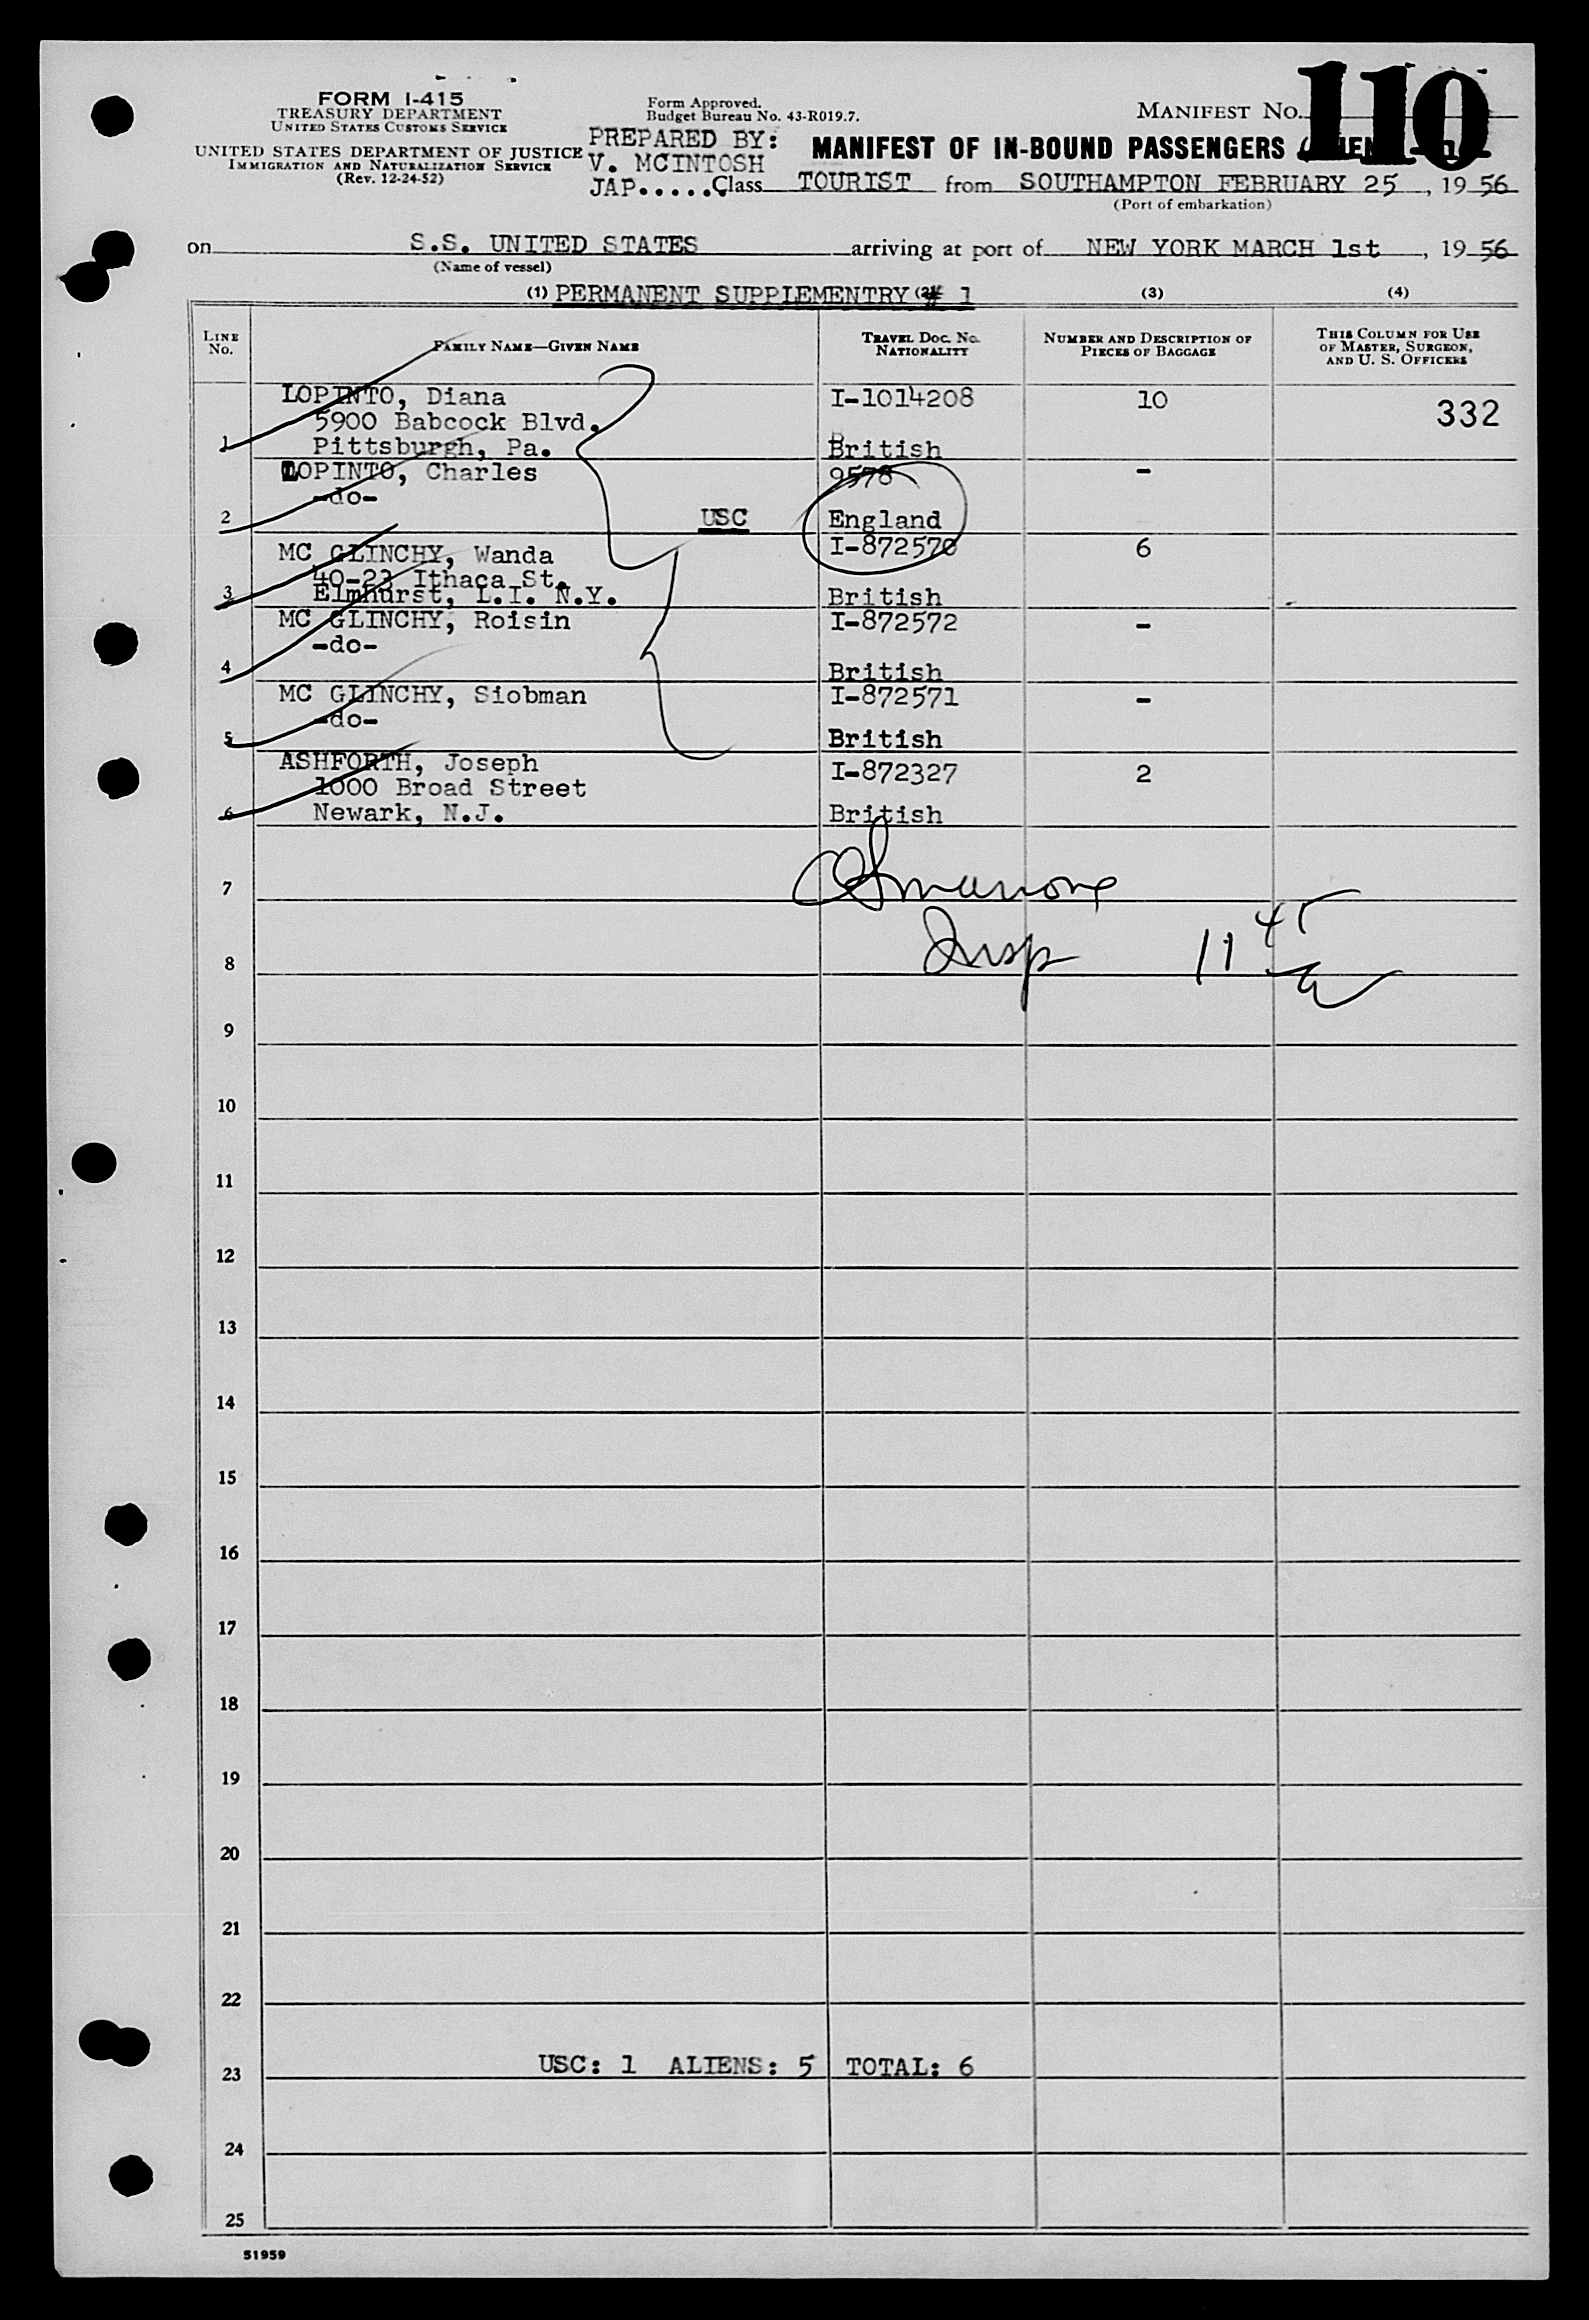 FORM I-415
TREASURY DEPARTMENT
UNITED STATES CUSTOMS SERVICE
UNITED STATES DEPARTMENT OF JUSTICE
IMMIGRATION AND NATURALIZATION SERVICE
(Rev. 12-24-52)
Form Approved.
Budget Bureau No. 43-R019.7.
PREPARED BY:
V. MCINTOSH
JAP.....
MANIFEST NO. 110
MANIFEST OF IN-BOUND PASSENGERS
Class TOURIST from SOUTHAMPTON FEBRUARY 25, 1956
(Port of embarkation)
on S.S. UNITED STATES arriving at port of NEW YORK MARCH 1st, 1956
(Name of vessel)
(1) PERMANENT SUPPIEMENTRY # 1 (3) (4)
LINE NO. FAMILY NAME—GIVEN NAME TRAVEL DOC. NO. NATIONALITY NUMBER AND DESCRIPTION OF PIECES OF BAGGAGE THIS COLUMN FOR USE OF MASTER, SURGEON, AND U. S. OFFICERS
LOPINTO, Diana I-1014208 10 332
5900 Babcock Blvd.
1 Pittsburgh, Pa. British
LOPINTO, Charles 9578 -
-do-
2 USC England
MC GLINCHY, Wanda I-872570 6
40-23 Ithaca St.
3 Elmhurst, L.I. N.Y. British
MC GLINCHY, Roisin I-872572 -
-do-
4 British
MC GLINCHY, Siobman I-872571 -
-do-
5 British
ASHFORTH, Joseph I-872327 2
1000 Broad Street
6 Newark, N.J. British
7
8 Insp 11 45 a
9
10
11
12
13
14
15
16
17
18
19
20
21
22
23 USC: 1 ALIENS: 5 TOTAL: 6
24
25
51959